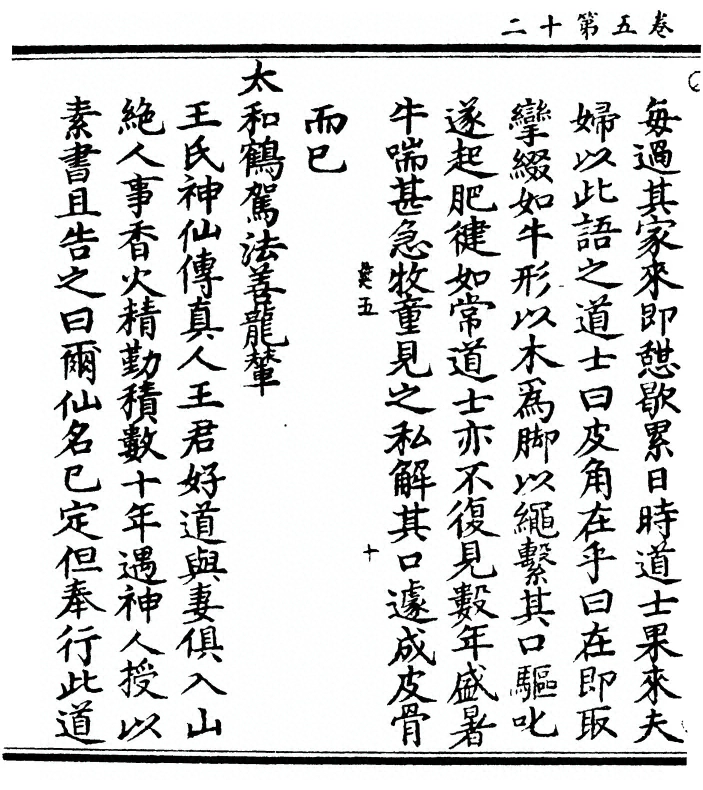 卷五第十二
每過其家來即憇歇累日時道士果來夫
婦以此語之道士曰皮角在乎曰在即取
攣綴如牛形以木為脚以繩繫其口驅叱
遂起肥健如常道士亦不復見數年盛暑
牛喘甚急牧童見之私解其口遽成皮骨
而已
太和鶴駕法善龍輦
王氏神仙傳真人王君好道與妻俱入山
絕人事香火精勤積數十年遇神人授以
素書且告之曰爾仙名已定但奉行此道